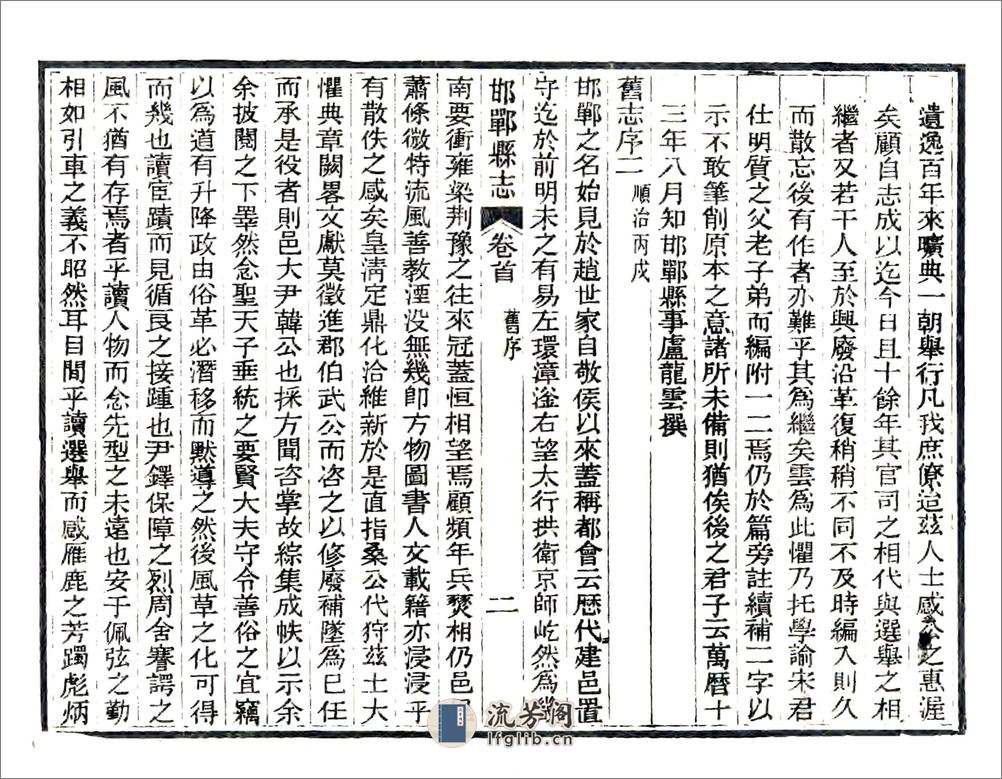 遺逸百年來曠典一朝舉行凡我庶僚迨茲人士感公之惠渥
矣顧自志成以迄今日且十餘年其官司之相代與選舉之相
繼者又若干人至於興廢沿革復稍稍不同不及時編入則久
而散忘後有作者亦難乎其為繼矣雲為此懼乃托學諭宋君
仕明質之父老子弟而編附一二焉仍於篇旁註續補二字以
示不敢筆削原本之意諸所未備則猶俟後之君子云萬曆十
三年八月知邯鄲縣事盧龍雲撰
舊志序二 順治丙戌
邯鄲之名始見於趙世家自敬侯以來蓋稱都會云歷代建邑置
守迄於前明未之有易左環漳滏右望太行拱衛京師屹然為畿
邯鄲縣志 卷首 舊序 二
南要衝雍梁荆豫之往來冠蓋恒相望焉顧頻年兵燹相仍邑
蕭條微特流風善教湮没無幾即方物圖書人文載籍亦浸浸乎
有散佚之感矣皇清定鼎化洽維新於是直指桑公代狩茲土大
懼典章闕畧文獻莫徵進郡伯武公而咨之以修廢補墜為已任
而承是役者則邑大尹韓公也採方聞咨掌故綜集成帙以示余
余披閱之下睪然念聖天子垂統之要賢大夫守令善俗之宜竊
以為道有升降政由俗革必潛移而默導之然後風草之化可得
而幾也讀宦蹟而見循良之接踵也尹鐸保障之烈周舍謇諤之
風不猶有存焉者乎讀人物而念先型之未遠也安于佩弦之勤
相如引車之義不昭然耳目間乎讀選舉而感雁鹿之芳躅彪炳
流芳閣
lfglib.cn